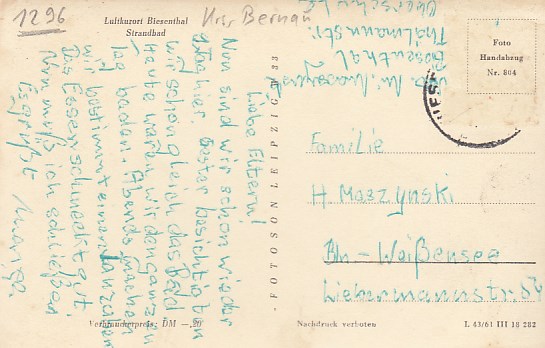 1296
Krs. Bernau
Luftkurort Biesenthal
Strandbad
Biesenthal
Thälmannstr.
Liebe Eltern!
Nun sind wir schon wieder
Tag hier. Gester besichtigten
wir schon gleich das Bad
Heute waren wir den ganzen
Tag baden. Abends machen
wir bestimmt einen
Das Essen schmeckt gut.
Nun muß ich schließen
Es grüßt
Verbraucherpreis: DM —,20
FOTOSON LEIPZIG M 33
Foto
Handabzug
Nr. 804
BIES
Familie
H. Maszynski
Bln - Weißensee
Liebermannstr. 54
Nachdruck verboten
L 43/61 III 18 282